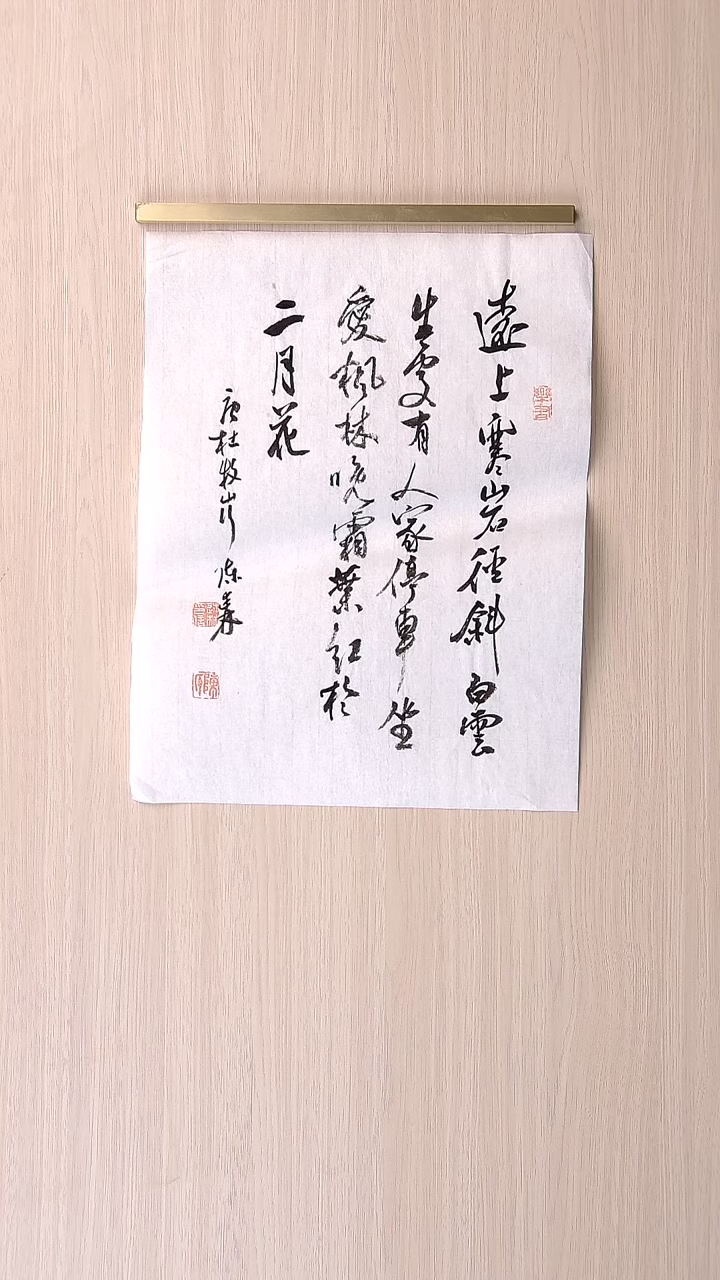 遠上寒山石徑斜白雲
生處有人家停車坐
愛楓林晚霜葉紅於
二月花
唐杜牧山行